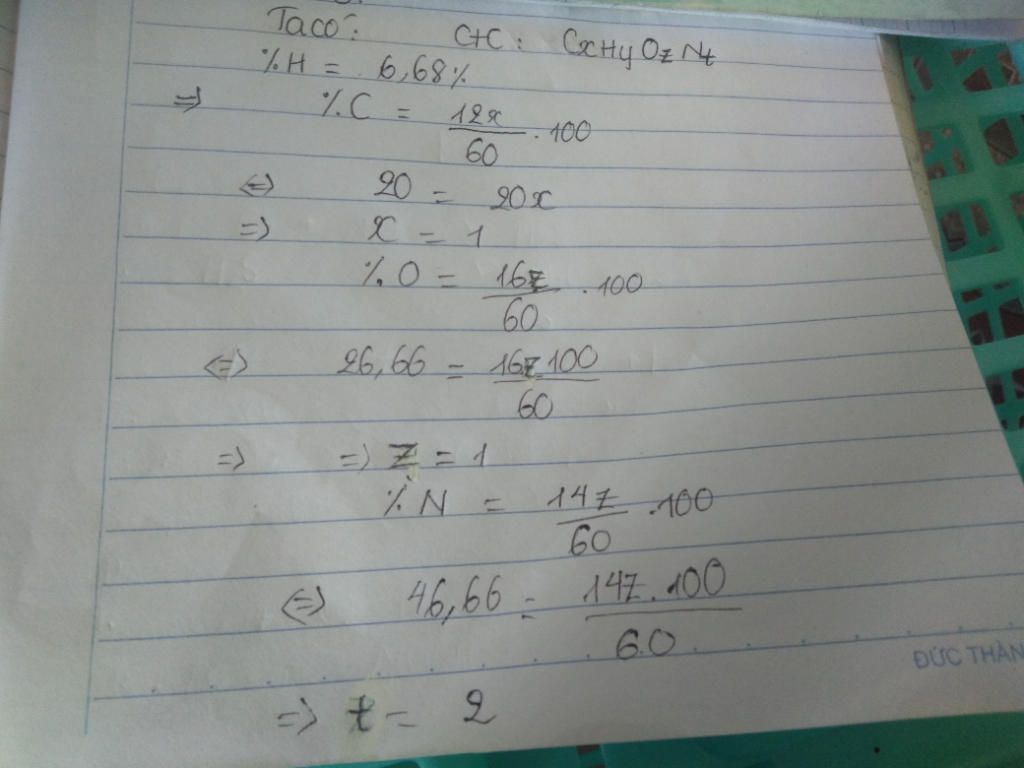 Ta có: CTC: CxHyOzNt
%H = 6,68%
=> %C = 12x/60 . 100
<=> 20 = 20x
=> x = 1
%O = 16z/60 . 100
<=> 26,66 = 16z.100/60
=> => z = 1
%N = 14z/60 .100
<=> 46,66 = 14z.100/60
ĐỨC THÀN
=> t = 2